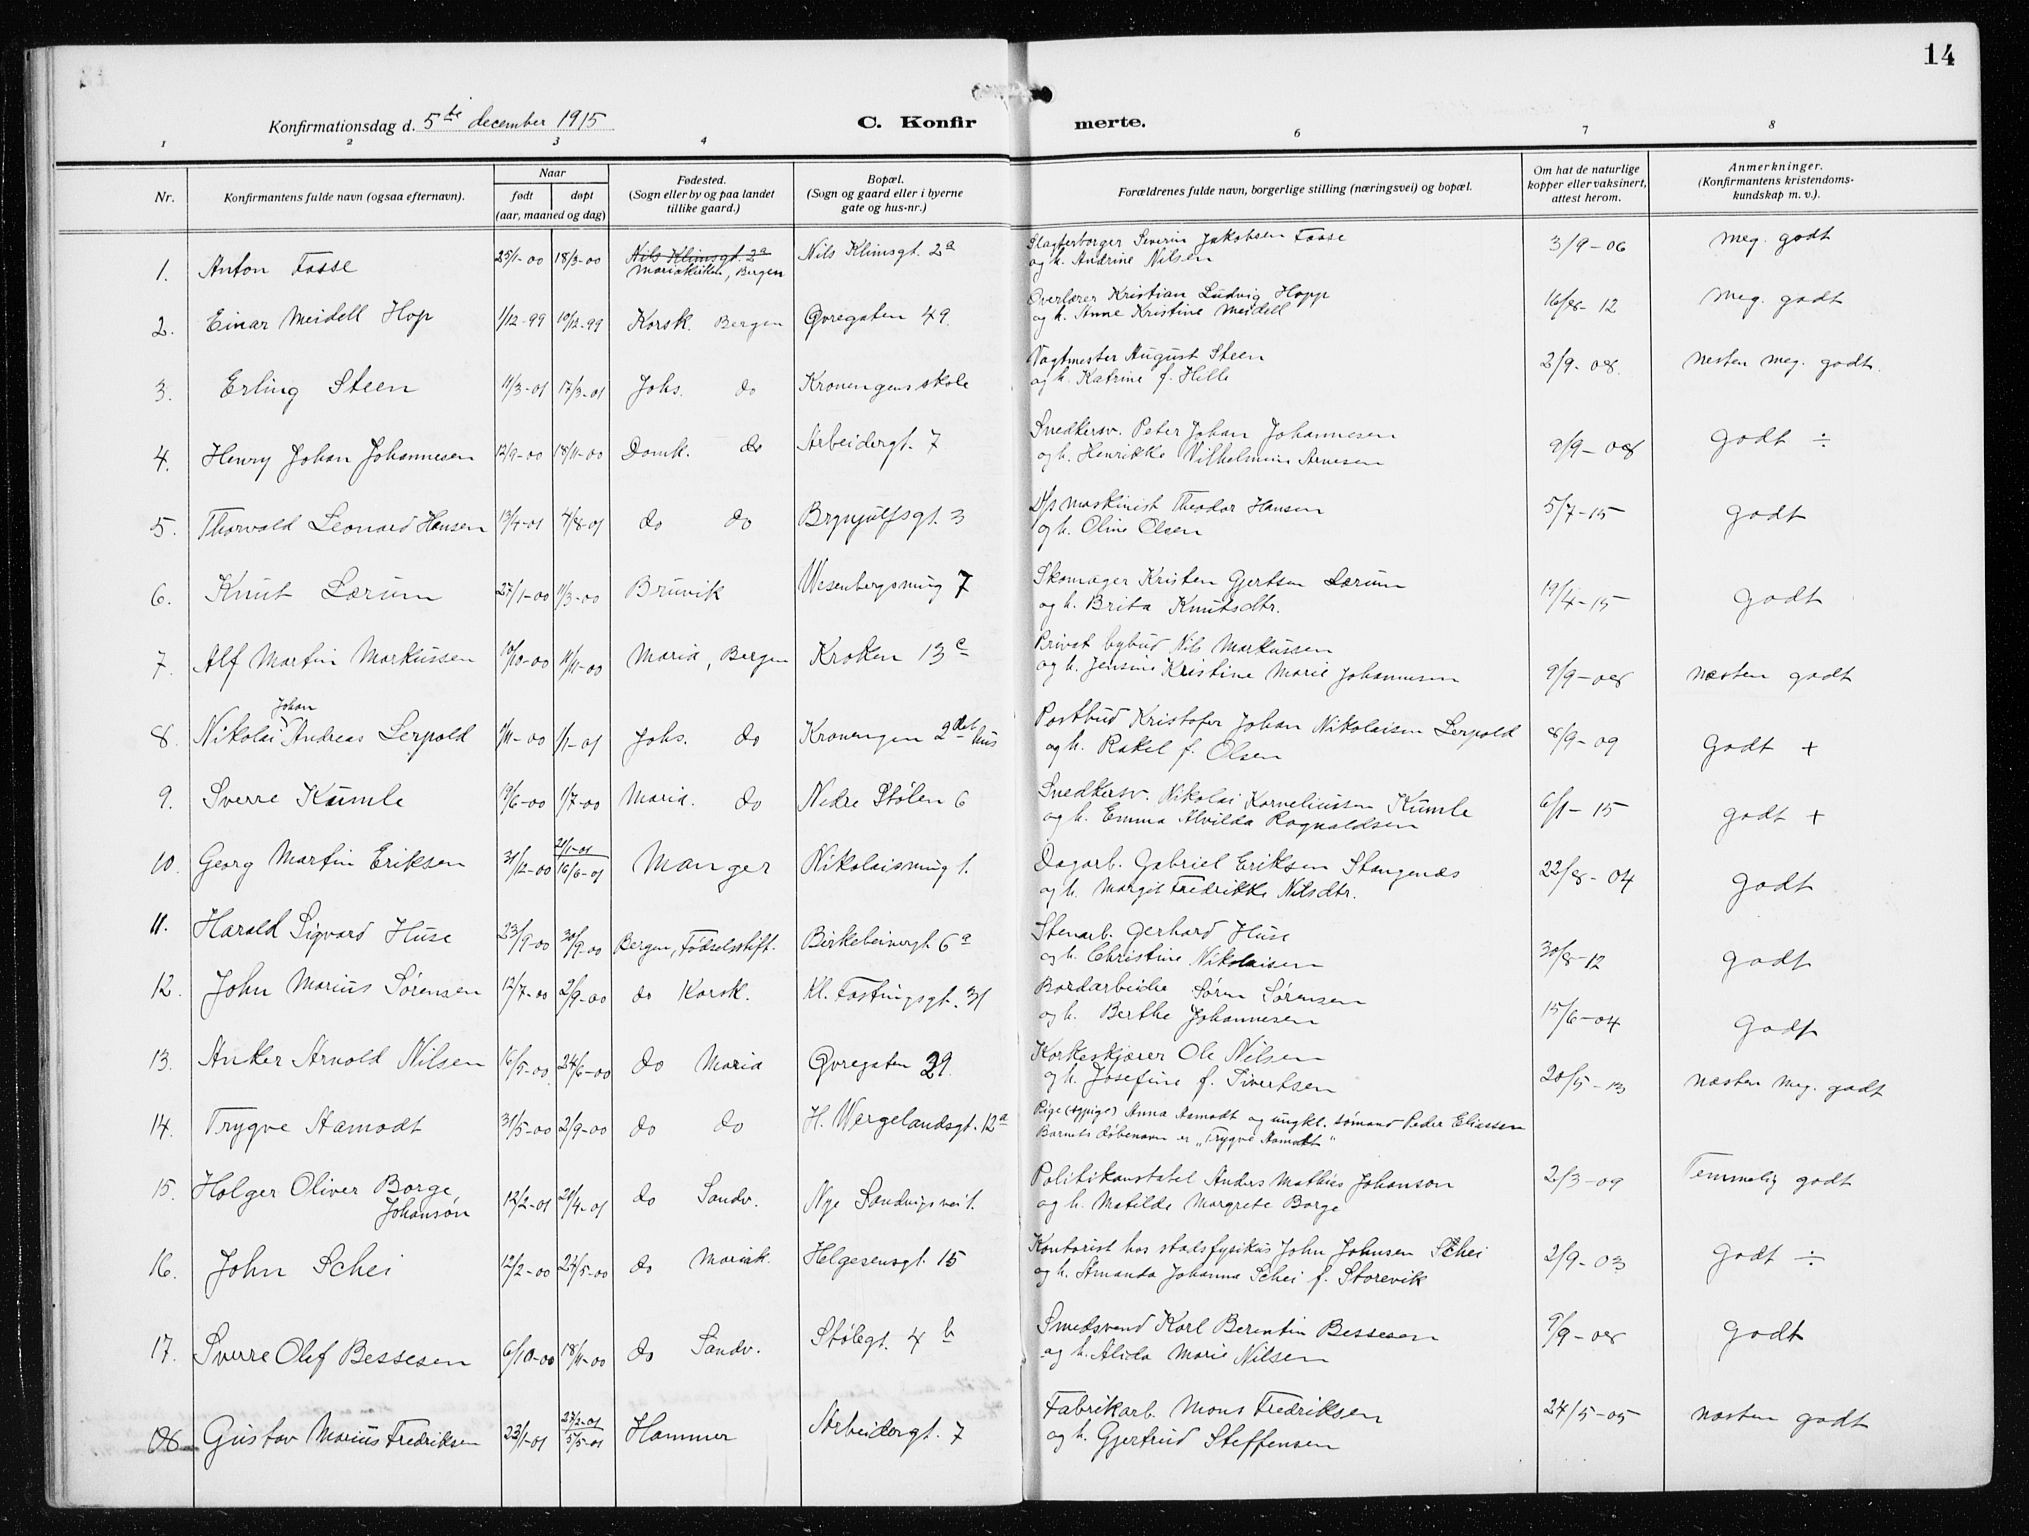 14
Konfirmationsdag d. 5te december 1915
C. Konfirmerte.
1 2 3 4 5 6 7 8
Nr. | Konfirmantens fulde navn (ogsaa efternavn). | Naar født døpt (aar, maaned og dag) | Fødested. (Sogn eller by og paa landet tillike gaard.) | Bopæl. (Sogn og gaard eller i byerne gate og hus-nr.) | Forældrenes fulde navn, borgerlige stilling (næringsvei) og bopæl. | Om hat de naturlige kopper eller vaksinert, attest herom. | Anmerkninger. (Konfirmantens kristendoms-kundskap m. v.).
1. Anton Fosse 25/1-00 18/3-00 Nils Klimsgt. 2a Mariakirken, Bergen Nils Klimsgt 2a Slagterborger Severin Jakobsen Fosse og h. Andrine Nilsen 3/9-06 meg. godt
2. Einar Meidell Hop 1/12-99 10/12-99 Korsk. Bergen Øvregaten 49 Overlærer Kristian Ludvig Hopp og h. Anne Kristine Meidell 16/8-12 meg. godt
3. Erling Steen 11/3-01 17/3-01 Johs. do Kronengens skole Vagtmester August Steen og h. Katrine f. Hille 2/9-08 nesten meg. godt.
4. Henry Johan Johannesen 12/9-00 18/11-00 Domk. do Arbeidergt. 7 Snedkersv. Peter Johan Johannesen og h. Henrikke Vilhelmine Arnesen 9/9-08 godt ÷
5. Thorvald Leonard Hansen 13/4-01 4/8-01 do do Brynjulfsgt. 3 D/s maskinist Theodor Hansen og h. Oline Olsen 5/7-15 godt
6. Knut Lærum 27/1-00 11/3-00 Bruvik Wesenbergsmug 7 Skomager Kristen Gjertsen Lærum og h. Brita Knutsdtr. 19/4-15 godt
7. Alf Martin Markussen 10/10-00 11/11-00 Maria, Bergen Kroken 13c Privat bybud Nils Markussen og h. Jensine Kristine Marie Johannesen 9/9-08 næsten godt
8. Nikolai Johan Andreas Lerpold 1/11-00 1/1-01 Johs. do Kronengen 2det hus Postbud Kristofer Johan Nikolaisen Lerpold og h. Rakel f. Olsen 8/9-09 godt +
9. Sverre Kumle 19/6-00 1/7-00 Maria. do Nedre Stølen 6 Snedkersv. Nikolai Korneliussen Kumle og h. Emma Alvilda Rognaldsen 6/1-15 godt +
10. Georg Martin Eriksen 31/12-00 21/1-01 16/6-01 Manger Nikolaismug 1. Dagarb. Gabriel Eriksen Stangenæs og h. Margit Fredrikke Nilsdtr. 22/8-04 godt
11. Harald Sigvard Huse 23/9-00 30/9-00 Bergen, Fødselsstift. Birkebeinergt 6a Stenarb. Gerhard Huse og h. Christine Nikolaisen 30/8-12 godt
12. John Marius Sørensen 12/7-00 2/9-00 do Korsk. Kl. Fostingsgt. 31 Bordarbeider Søren Sørensen og h. Berthe Johannesen 15/6-04 godt
13. Anker Arnold Nilsen 16/5-00 24/6-00 do Maria Øvregaten 29. Korkeskjærer Ole Nilsen og h. Josefine f. Sivertsen 20/5-13 næsten meg. godt
14. Trygve Aamodt 31/5-00 2/9-00 do do H. Wergelandsgt. 12a Pige (sypige) Anna Aamodt og ungkl. sømand Peder Eliassen Barnets døbenavn er „Trygve Aamodt“
15. Holger Oliver Borge Johanson 12/2-01 20/4-01 do Sandv. Nye Sandvigsvei 1. Politikonstabel Anders Mathias Johanson og h. Matilde Margrete Borge 2/3-09 Temmelig godt
16. John Schei 12/2-00 24/5-00 do Mariak. Helgesensgt. 15 Kontorist hos stadsfysikus John Johnsen Schei og h. Amanda Johanna Schei f. Storevik 2/9-03 godt ÷
17. Sverre Olef Bessesen 6/10-00 18/11-00 do Sandv. Stølegt. 4 b Smedsvend Karl Berentin Bessesen og h. Alida Marie Nilsen 9/9-08 godt
08 Gustav Marius Fredriksen 23/1-01 27/2-01 5/5-01 Hammer Arbeidergt. 7 Fabrikarb. Mons Fredriksen og h. Gjertrud Steffensen 24/5-05 næsten godt